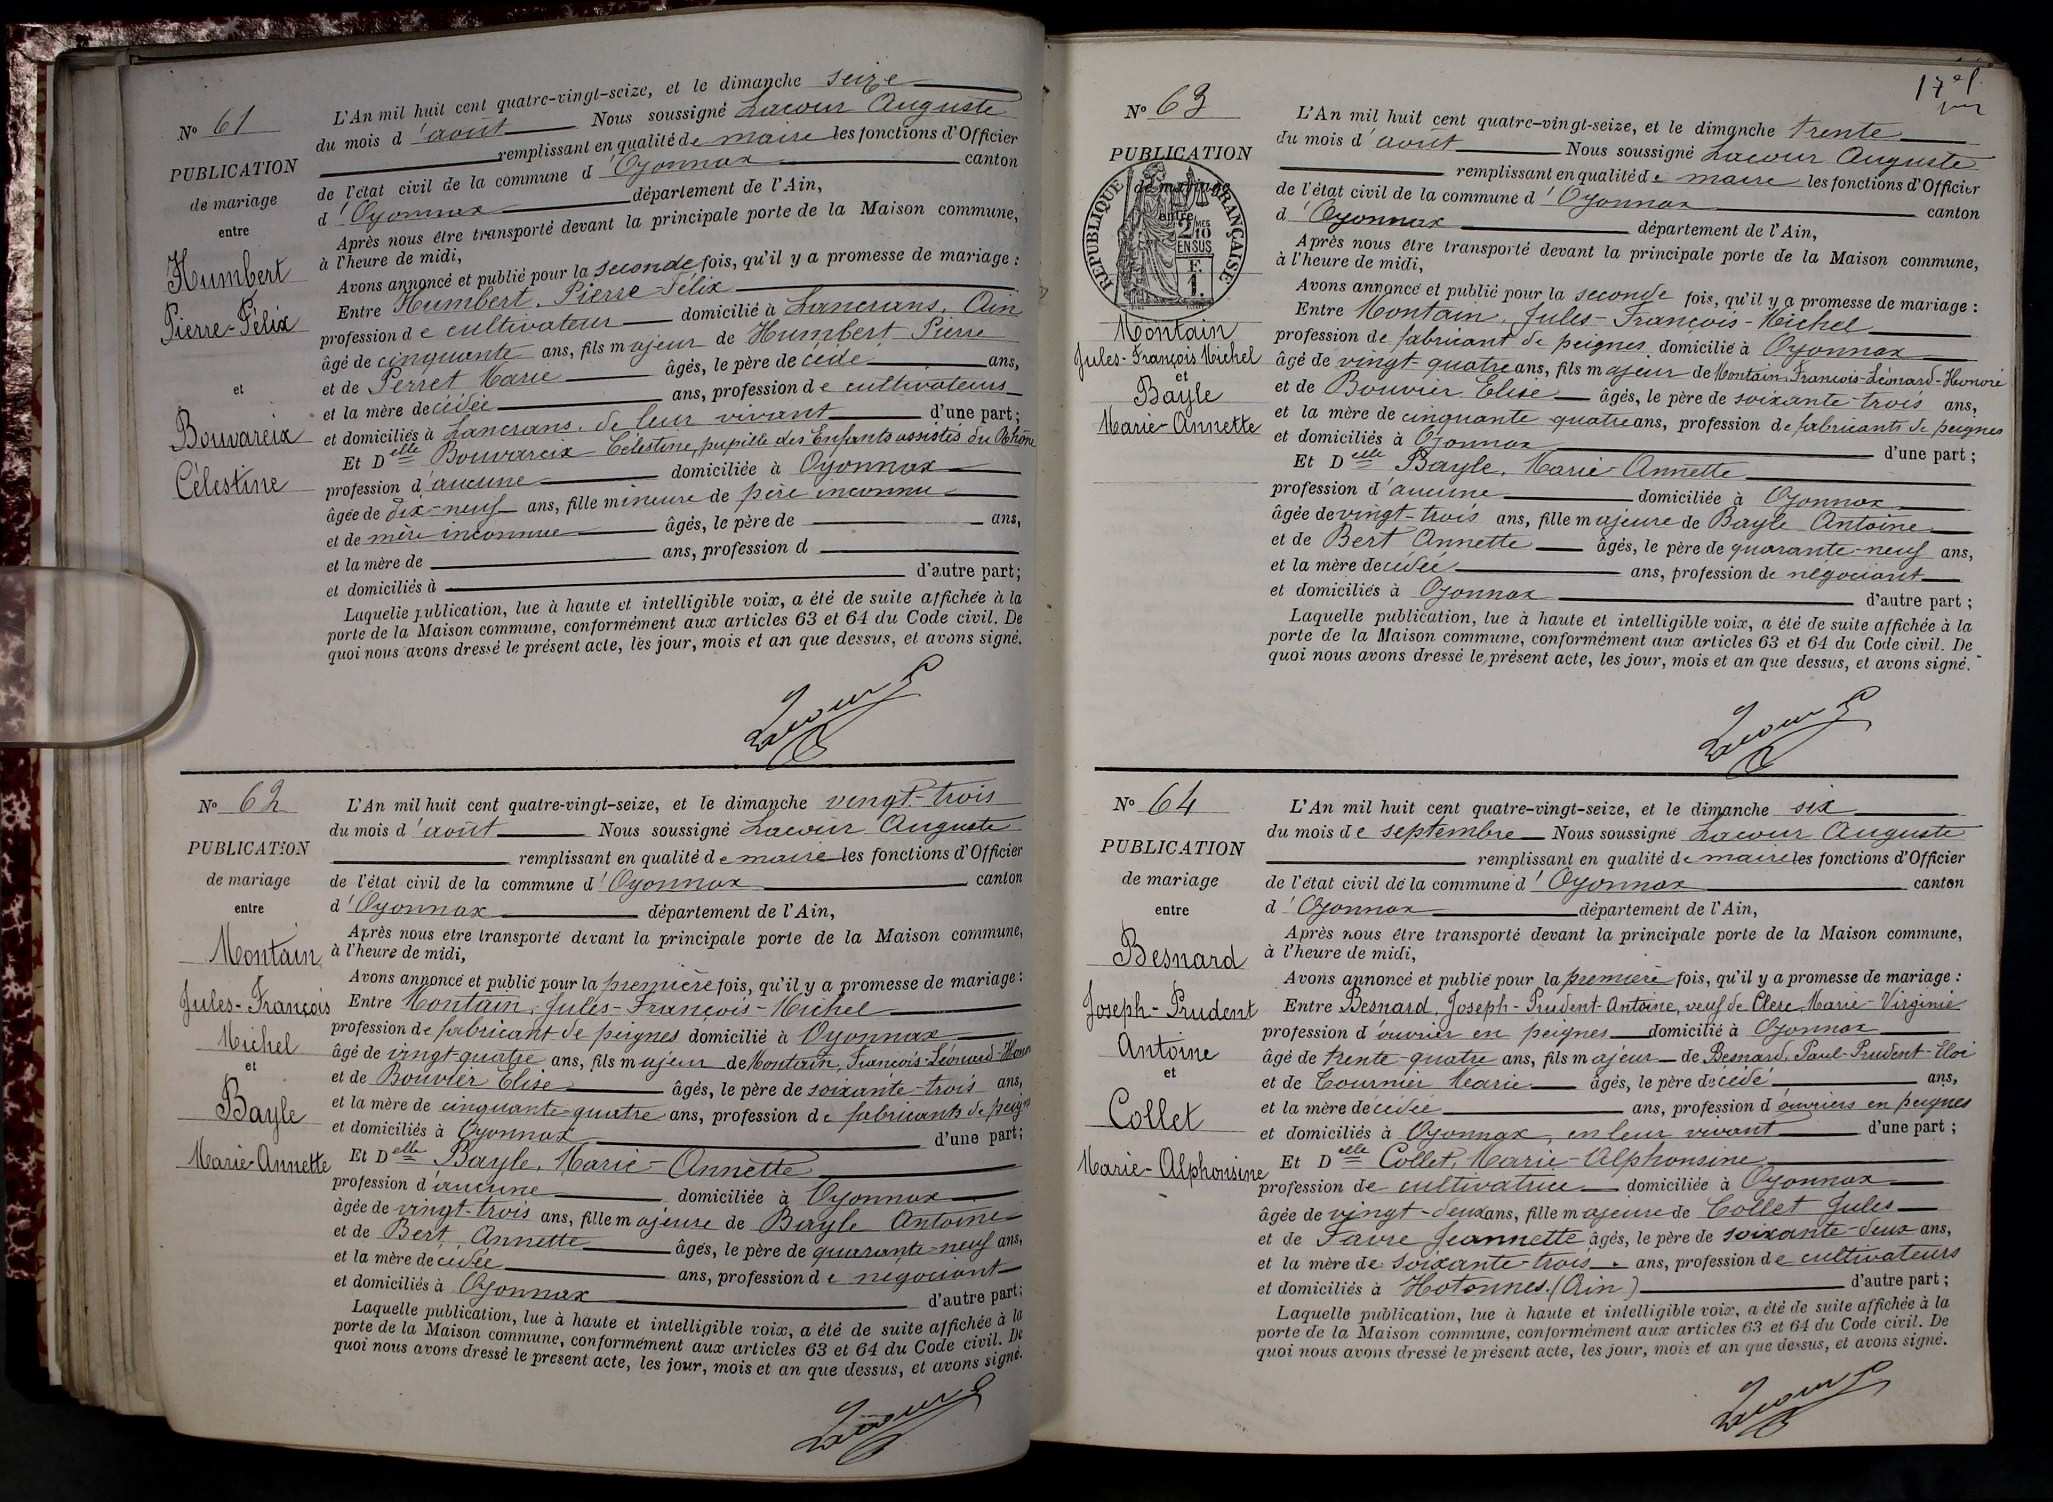 N° 61
PUBLICATION
de mariage
entre
Humbert
Pierre-Félix
et
Bouvareix
Célestine
L'An mil huit cent quatre-vingt-seize, et le dimanche seize
du mois d'août Nous soussigné Lacour Auguste
remplissant en qualité de maire les fonctions d'Officier
de l'état civil de la commune d'Oyonnax canton
d'Oyonnax département de l'Ain,
Après nous être transporté devant la principale porte de la Maison commune,
à l'heure de midi,
Avons annoncé et publié pour la seconde fois, qu'il y a promesse de mariage :
Entre Humbert, Pierre-Félix
profession de cultivateur domicilié à Lancrans, Ain
âgé de cinquante ans, fils majeur de Humbert Pierre
et de Perret Marie âgés, le père decédé ans,
et la mère decédée ans, profession de cultivateurs
et domiciliés à Lancrans, de leur vivant d'une part ;
Et Delle Bouvareix Célestine, pupille des Enfants assistés du Rhône
profession d'aucune domiciliée à Oyonnax
âgée de dix-neuf ans, fille mineure de père inconnu
et de mère inconnue âgés, le père de ans,
et la mère de ans, profession d
et domiciliés à d'autre part ;
Laquelle publication, lue à haute et intelligible voix, a été de suite affichée à la
porte de la Maison commune, conformément aux articles 63 et 64 du Code civil. De
quoi nous avons dressé le présent acte, les jour, mois et an que dessus, et avons signé.
Lacour
N° 62
PUBLICATION
de mariage
entre
Montain
Jules-François
Michel
et
Bayle
Marie-Annette
L'An mil huit cent quatre-vingt-seize, et le dimanche vingt-trois
du mois d'août Nous soussigné Lacour Auguste
remplissant en qualité de maire les fonctions d'Officier
de l'état civil de la commune d'Oyonnax canton
d'Oyonnax département de l'Ain,
Après nous être transporté devant la principale porte de la Maison commune,
à l'heure de midi,
Avons annoncé et publié pour la première fois, qu'il y a promesse de mariage :
Entre Montain, Jules-François-Michel
profession de fabricant de peignes domicilié à Oyonnax
âgé de vingt-quatre ans, fils majeur de Montain, François-Léonard-Honoré
et de Bouvier Elise âgés, le père de soixante-trois ans,
et la mère de cinquante-quatre ans, profession de fabricants de peignes
et domiciliés à Oyonnax d'une part ;
Et Delle Bayle, Marie-Annette
profession d'aucune domiciliée à Oyonnax
âgée de vingt-trois ans, fille majeure de Bayle Antoine
et de Bert Annette âgés, le père de quarante-neuf ans,
et la mère décédée ans, profession de négociant
et domiciliés à Oyonnax d'autre part ;
Laquelle publication, lue à haute et intelligible voix, a été de suite affichée à la
porte de la Maison commune, conformément aux articles 63 et 64 du Code civil. De
quoi nous avons dressé le présent acte, les jour, mois et an que dessus, et avons signé.
Lacour
N° 63
PUBLICATION
de mariage
entre
RÉPUBLIQUE FRANÇAISE
2 MES
10
EN SUS
F.
1.
Montain
Jules-François Michel
et
Bayle
Marie-Annette
L'An mil huit cent quatre-vingt-seize, et le dimanche trente
du mois d'août Nous soussigné Lacour Auguste
remplissant en qualité de maire les fonctions d'Officier
de l'état civil de la commune d'Oyonnax canton
d'Oyonnax département de l'Ain,
Après nous être transporté devant la principale porte de la Maison commune,
à l'heure de midi,
Avons annoncé et publié pour la seconde fois, qu'il y a promesse de mariage :
Entre Montain, Jules-François-Michel
profession de fabricant de peignes domicilié à Oyonnax
âgé de vingt-quatre ans, fils majeur de Montain, François-Léonard-Honoré
et de Bouvier Elise âgés, le père de soixante-trois ans,
et la mère de cinquante quatre ans, profession de fabricants de peignes
et domiciliés à Oyonnax d'une part ;
Et Delle Bayle, Marie-Annette
profession d'aucune domiciliée à Oyonnax
âgée de vingt-trois ans, fille majeure de Bayle Antoine
et de Bert Annette âgés, le père de quarante-neuf ans,
et la mère decédée ans, profession de négociant
et domiciliés à Oyonnax d'autre part ;
Laquelle publication, lue à haute et intelligible voix, a été de suite affichée à la
porte de la Maison commune, conformément aux articles 63 et 64 du Code civil. De
quoi nous avons dressé le présent acte, les jour, mois et an que dessus, et avons signé.
Lacour
N° 64
PUBLICATION
de mariage
entre
Besnard
Joseph-Prudent
Antoine
et
Collet
Marie-Alphonsine
L'An mil huit cent quatre-vingt-seize, et le dimanche six
du mois de septembre Nous soussigné Lacour Auguste
remplissant en qualité de maire les fonctions d'Officier
de l'état civil de la commune d'Oyonnax canton
d'Oyonnax département de l'Ain,
Après nous être transporté devant la principale porte de la Maison commune,
à l'heure de midi,
Avons annoncé et publié pour la première fois, qu'il y a promesse de mariage :
Entre Besnard, Joseph-Prudent-Antoine, veuf de Clerc Marie-Virginie
profession d'ouvrier en peignes domicilié à Oyonnax
âgé de trente-quatre ans, fils majeur de Besnard, Paul-Prudent-Eloi
et de Tournier Marie âgés, le père décédé ans,
et la mère décédée ans, profession d'ouvriers en peignes
et domiciliés à Oyonnax, en leur vivant d'une part ;
Et Delle Collet, Marie-Alphonsine
profession de cultivatrice domiciliée à Oyonnax
âgée de vingt-deux ans, fille majeure de Collet Jules
et de Favre Jeannette âgés, le père de soixante-deux ans,
et la mère de soixante-trois ans, profession de cultivateurs
et domiciliés à Hotonnes (Ain) d'autre part ;
Laquelle publication, lue à haute et intelligible voix, a été de suite affichée à la
porte de la Maison commune, conformément aux articles 63 et 64 du Code civil. De
quoi nous avons dressé le présent acte, les jour, mois et an que dessus, et avons signé.
Lacour